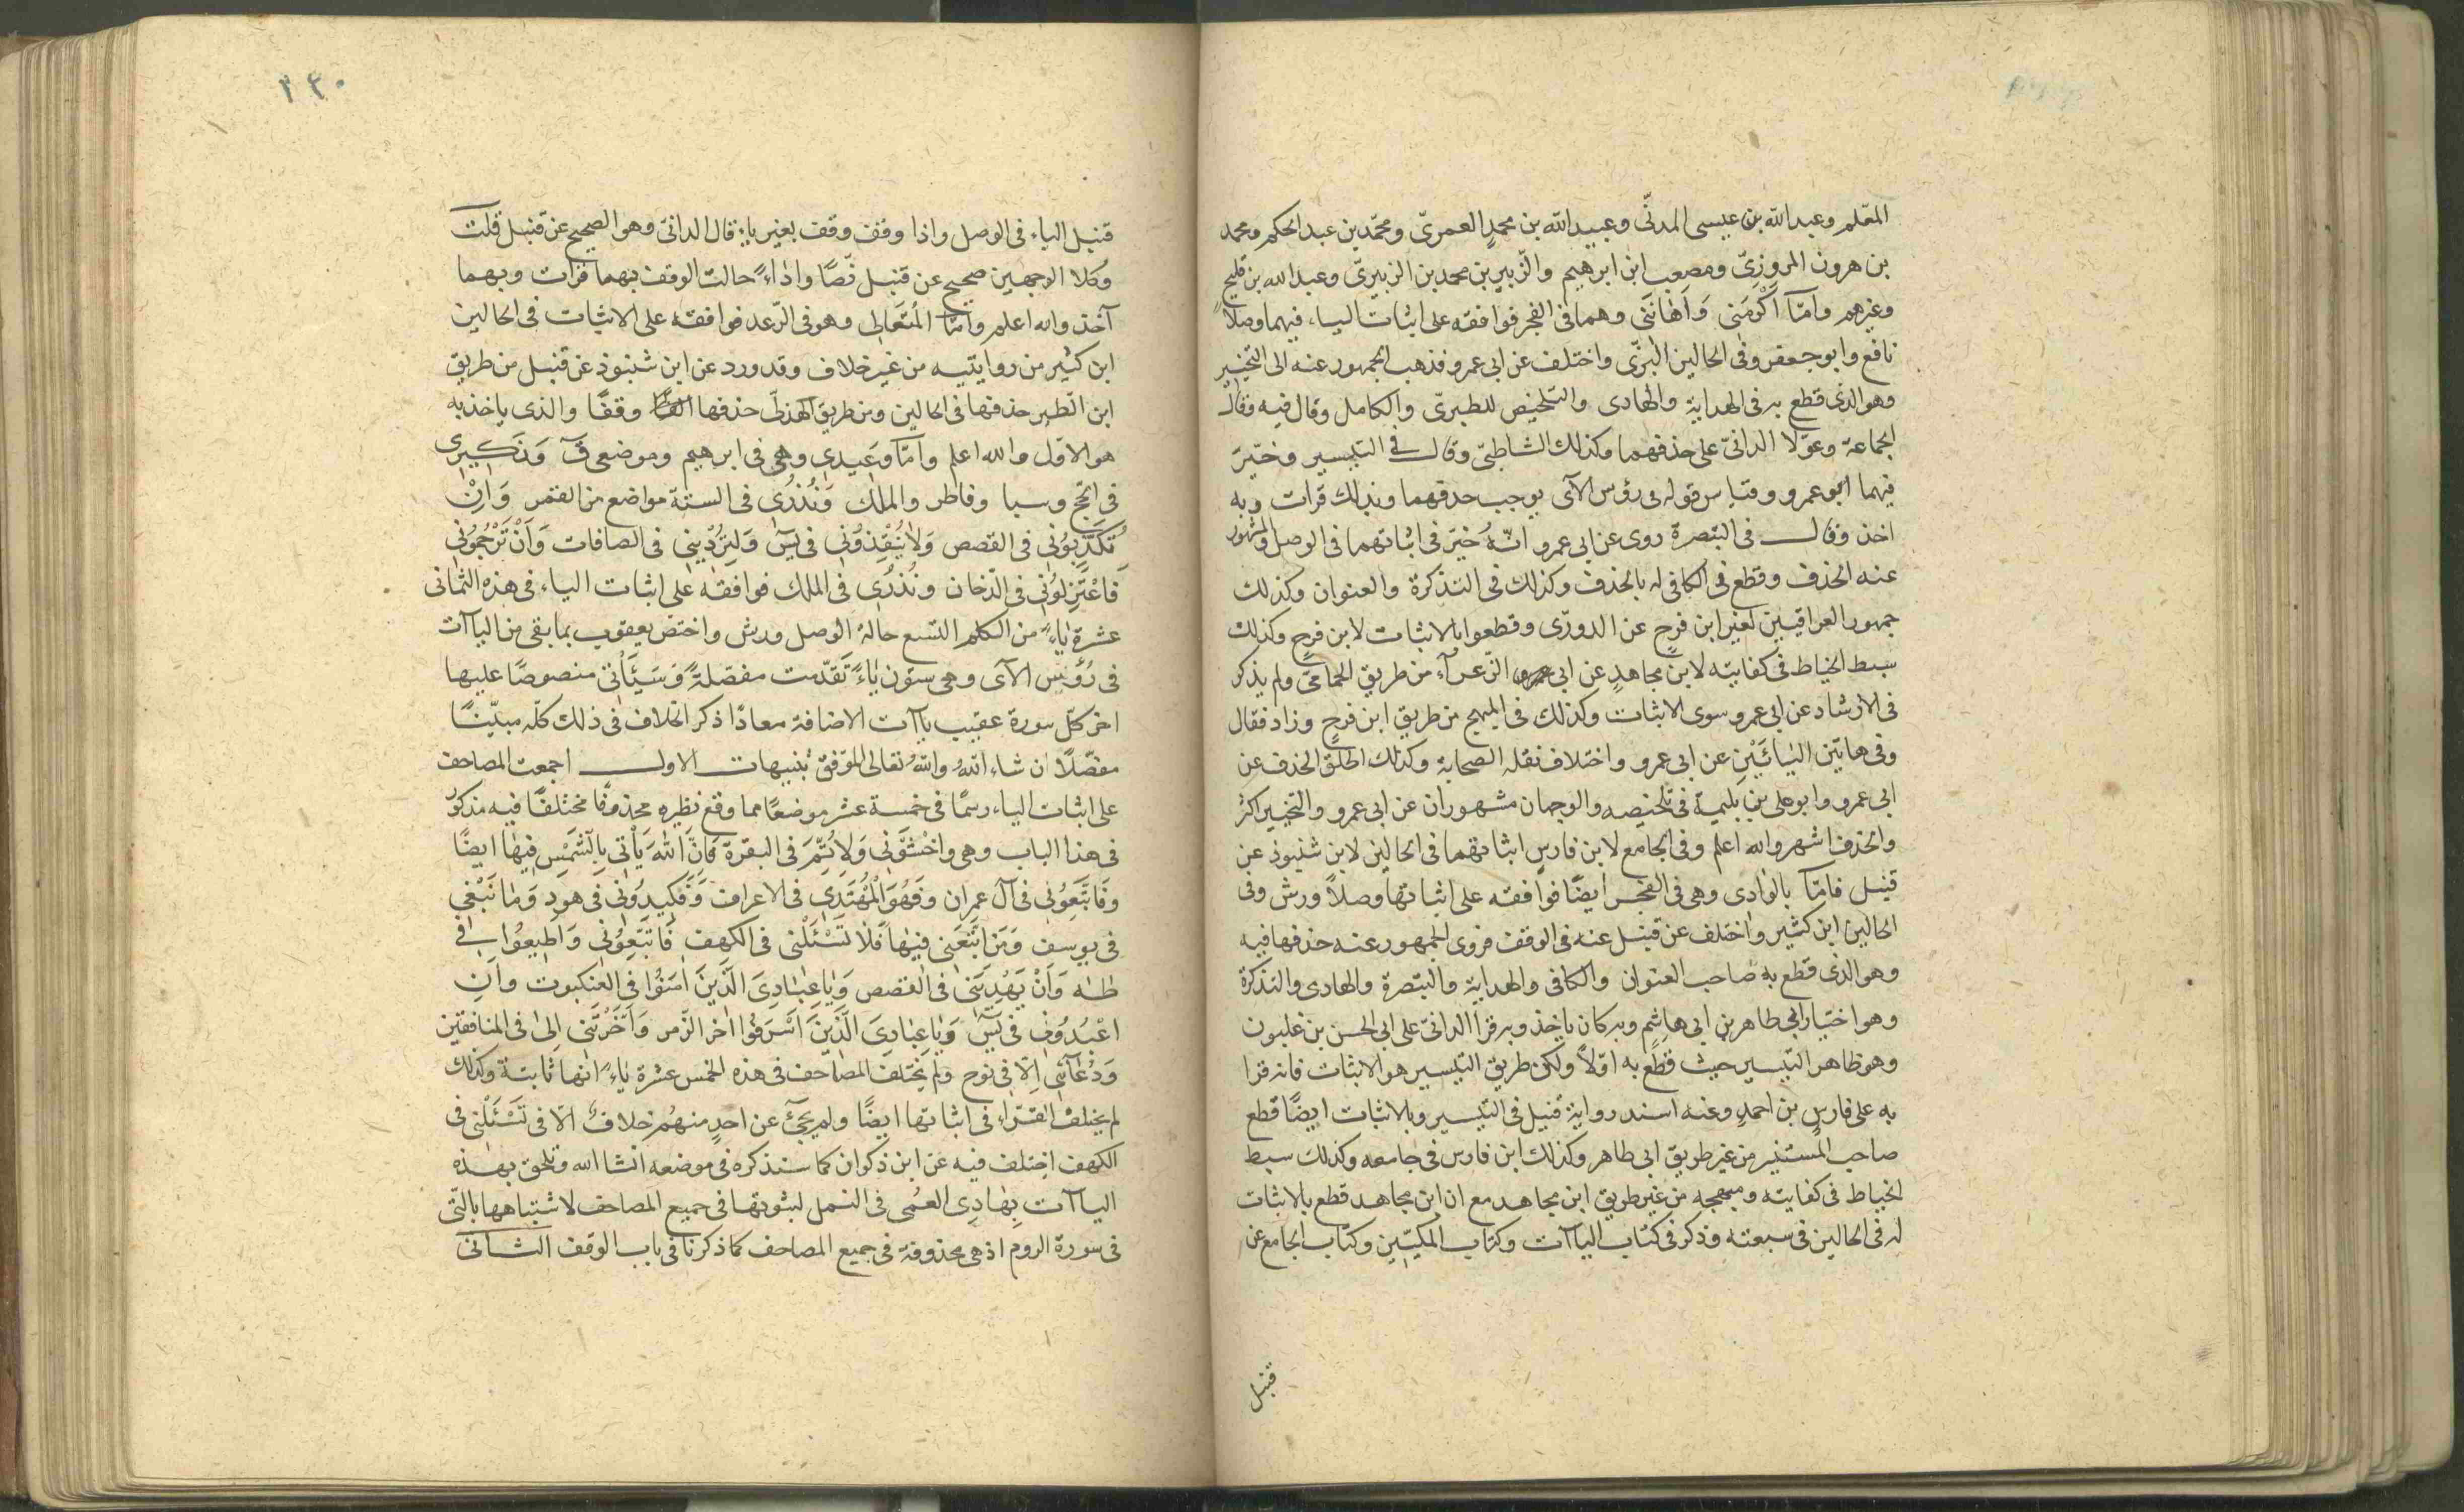 المعلم وعبد الله بن عيسى المدنّى وعبيد الله بن محمدٍ العمرىّ ومحمّد بن عبد الحكم ومحمد
بن هرون المروزىّ ومصعب ابن ابرهيم والزّبير بن محمد بن الزبيرىّ وعبد الله بن قليحٍ
وغيرهم وامّا أَكْرَمَنِى وَأَهَانَنِى وهما فى الفجر فوافقه على اثبات الياء فيهما وصلاً
نافع وابو جعفر وفى الحالين البزّى واختلف عن ابى عمرو فذهب الجمهور عنه الى التخيير
وهو الذى قطع به فى الهداية والهادى والتلخيص للطبرىّ والكامل وقال فيه وقال
الجماعة وعوّلا الدانىّ على حذفهما وكذلك الشاطبىّ وقال فى التيسير وخيّر
فيهما ابو عمرو وقياس قوله فى رؤس الآى يوجب حذفهما وبذلك قرات وبه
اخذ وقال فى التبصرة روى عن ابى عمرو انّه خيّر فى اثباتهما فى الوصل والمشهور
عنه الحذف وقطع فى الكافى له بالحذف وكذلك فى التذكرة والعنوان وكذلك
جمهور العراقيين لغير ابن فرحٍ عن الدورّى وقطعوا بالاثبات لابن فرحٍ وكذلك
سبط الخياط فى كفايته لابن مجاهدٍ عن ابى الزّعرآء من طريق الحمامّى ولم يذكر
فى الارشاد عن ابى عمرو سوى الاثبات وكذلك فى المبهج من طريق ابن فرحٍ وزاد فقال
وفى هاتين اليائَيْنِ عن ابى عمرو واختلاف نقله الصحابة وكذلك اطلق الحذف عن
ابى عمرو وابو على بن بليمة فى تلخيصه والوجهان مشهوران عن ابى عمرو والتخيير اكثر
والحذف اشهر والله اعلم وفى الجامع لابن فارسٍ اثباتهما فى الحالين لابن شنبوذ عن
قنبل فامّا بالوادى وهى فى الفجر ايضًا فوافقه على اثباتها وصلاً ورش وفى
الحالين ابن كثير واختلف عن قنبل عنه فى الوقف فروى الجمهور عنه حذفها فيه
وهو الذى قطع به صاحب العنوان والكافى والهداية والتبصرة والهادى والتذكرة
وهو اختيار ابى طاهر بن ابى هاشم وبه كان ياخذ وبه قرا الدانىّ على ابى الحسن بن غلبون
وهو ظاهر التيسير حيث قطع به اوّلاً ولكن طريق التيسير هو الاثبات فانه قرا
به على فارس بن احمدٍ وعنه اسند رواية قنبل فى التيسير وبالاثبات ايضًا قطع
صاحب المستنير من غير طريق ابى طاهر وكذلك ابن فارس فى جامعه وكذلك سبط
الخياط فى كفايته ومبهجه من غير طريق ابن مجاهد مع ان ابن مجاهد قطع بالاثبات
له فى الحالين فى سبعته وذكر فى كتاب الياآت وكتاب المكيّين وكتاب الجامع عن
قنبل
٢٤٠
قنبل الياء فى الوصل واذا وقف وقف بغير ياء قال الدانىّ وهو الصحيح عن قنبل قلت
وكلا الوجهين صحيح عن قنبل نصًّا واداءً حالت الوقف بهما قرات وبهما
آخذ والله اعلم وامّا المُتَعَالِى وهو فى الرّعد فوافقه على الاثبات فى الحالين
ابن كثير من روايتيه من غير خلاف وقد ورد عن ابن شنبوذ عن قنبل من طريق
ابن الطبر حذفها فى الحالين ومن طريق الهذلىّ حذفها وقفًا والذى ياخذ به
هو الاوّل والله اعلم وامّا وَعِيدِى وهى فى ابرهيم وموضعى قٓ وَنَكِيرِى
فى الحج وسبا وفاطر والملك وَنُذُرِى فى الستة مواضع من القمر وَاِنْ
تُكَذِّبُونِى فى القصص وَلاَ يُنْقِذُونِى فى يسٓ وَلَتُرْدِينِى فى الصافات وَاَنْ تَرْجُمُونِى
فَاعْتَزِلُونِى فى الدّخان ونُذُرِى فى الملك فوافقه على اثبات الياء فى هذه الثمانى
عشرة ياءً من الكلم التسع حالة الوصل ورش واختصّ يعقوب بما بقى من الياآت
فى رُؤُسِ الآى وهى ستّون ياءً تَقدّمت مفصّلةً وَسَيَأْتى منصوصًا عليها
اخر كلّ سورة عقيب ياآت الاضافة معادًا ذكر الخلاف فى ذلك كلّه مبيّنًا
مفصّلاً ان شاء اللهُ واللهُ تعالى الموّفق تنبيهات الاول اجمعت المصاحف
على اثبات الياء رسمًا فى خمسة عشر موضعًا مما وقع نظيره محذوفًا مختلفًا فيه مذكور
فى هذا الباب وهى واخْشَوْنِى وَلاُِتِمَّ فى البقرة فَاِنَّ اللهَ يَاْتِى بِالشَّمْسِ فيها ايضًا
وفَاتَّبِعُونِى فى آل عمران وفَهُوَ الْمُهْتَدِى فى الاعراف وَفَكِيدُونِى فى هود وَمَا نَبْغِى
فى يوسف وَمَنِ اتَّبَعَنِى فيها فَلاَ تَسْئَلْنِى فى الكهف فَاتَّبِعُونِى وَاَطِيعُوا فى
طه وَاَنْ يَهْدِيَنِى فى القصص وَيَا عِبَادِىَ الَّذِينَ اٰمَنُوا فى العنكبوت وأنِ
اعْبُدُونِى فى يسٓ وَيَا عِبَادِىَ الَّذِينَ اَسْرَفُوا اخر الزّمر وَاَخَّرْتَنِى اِلىٰ فى المنافقين
وَدُعَآئِى اِلاَّ فى نوح ولم يختلف المصاحف فى هذه الخمس عشرة ياءً انها ثابتة وكذلك
لم يختلف القرّاء فى اثباتها ايضًا ولم يجئ عن احدٍ منهُم خلافٌ الاّ فى تَسْئَلْنِى فى
الكهف اختلف فيه عن ابن ذكوان كما سنذكره فى موضعه انشا الله وتلحق بهذه
الياآت بِهَادِى العُمْى فى النمل لثبوتها فى جميع المصاحف لاشتباهها بالتّى
فى سورة الروم اذ هى محذوفة فى جميع المصاحف كما ذكرنا فى باب الوقف الثانى